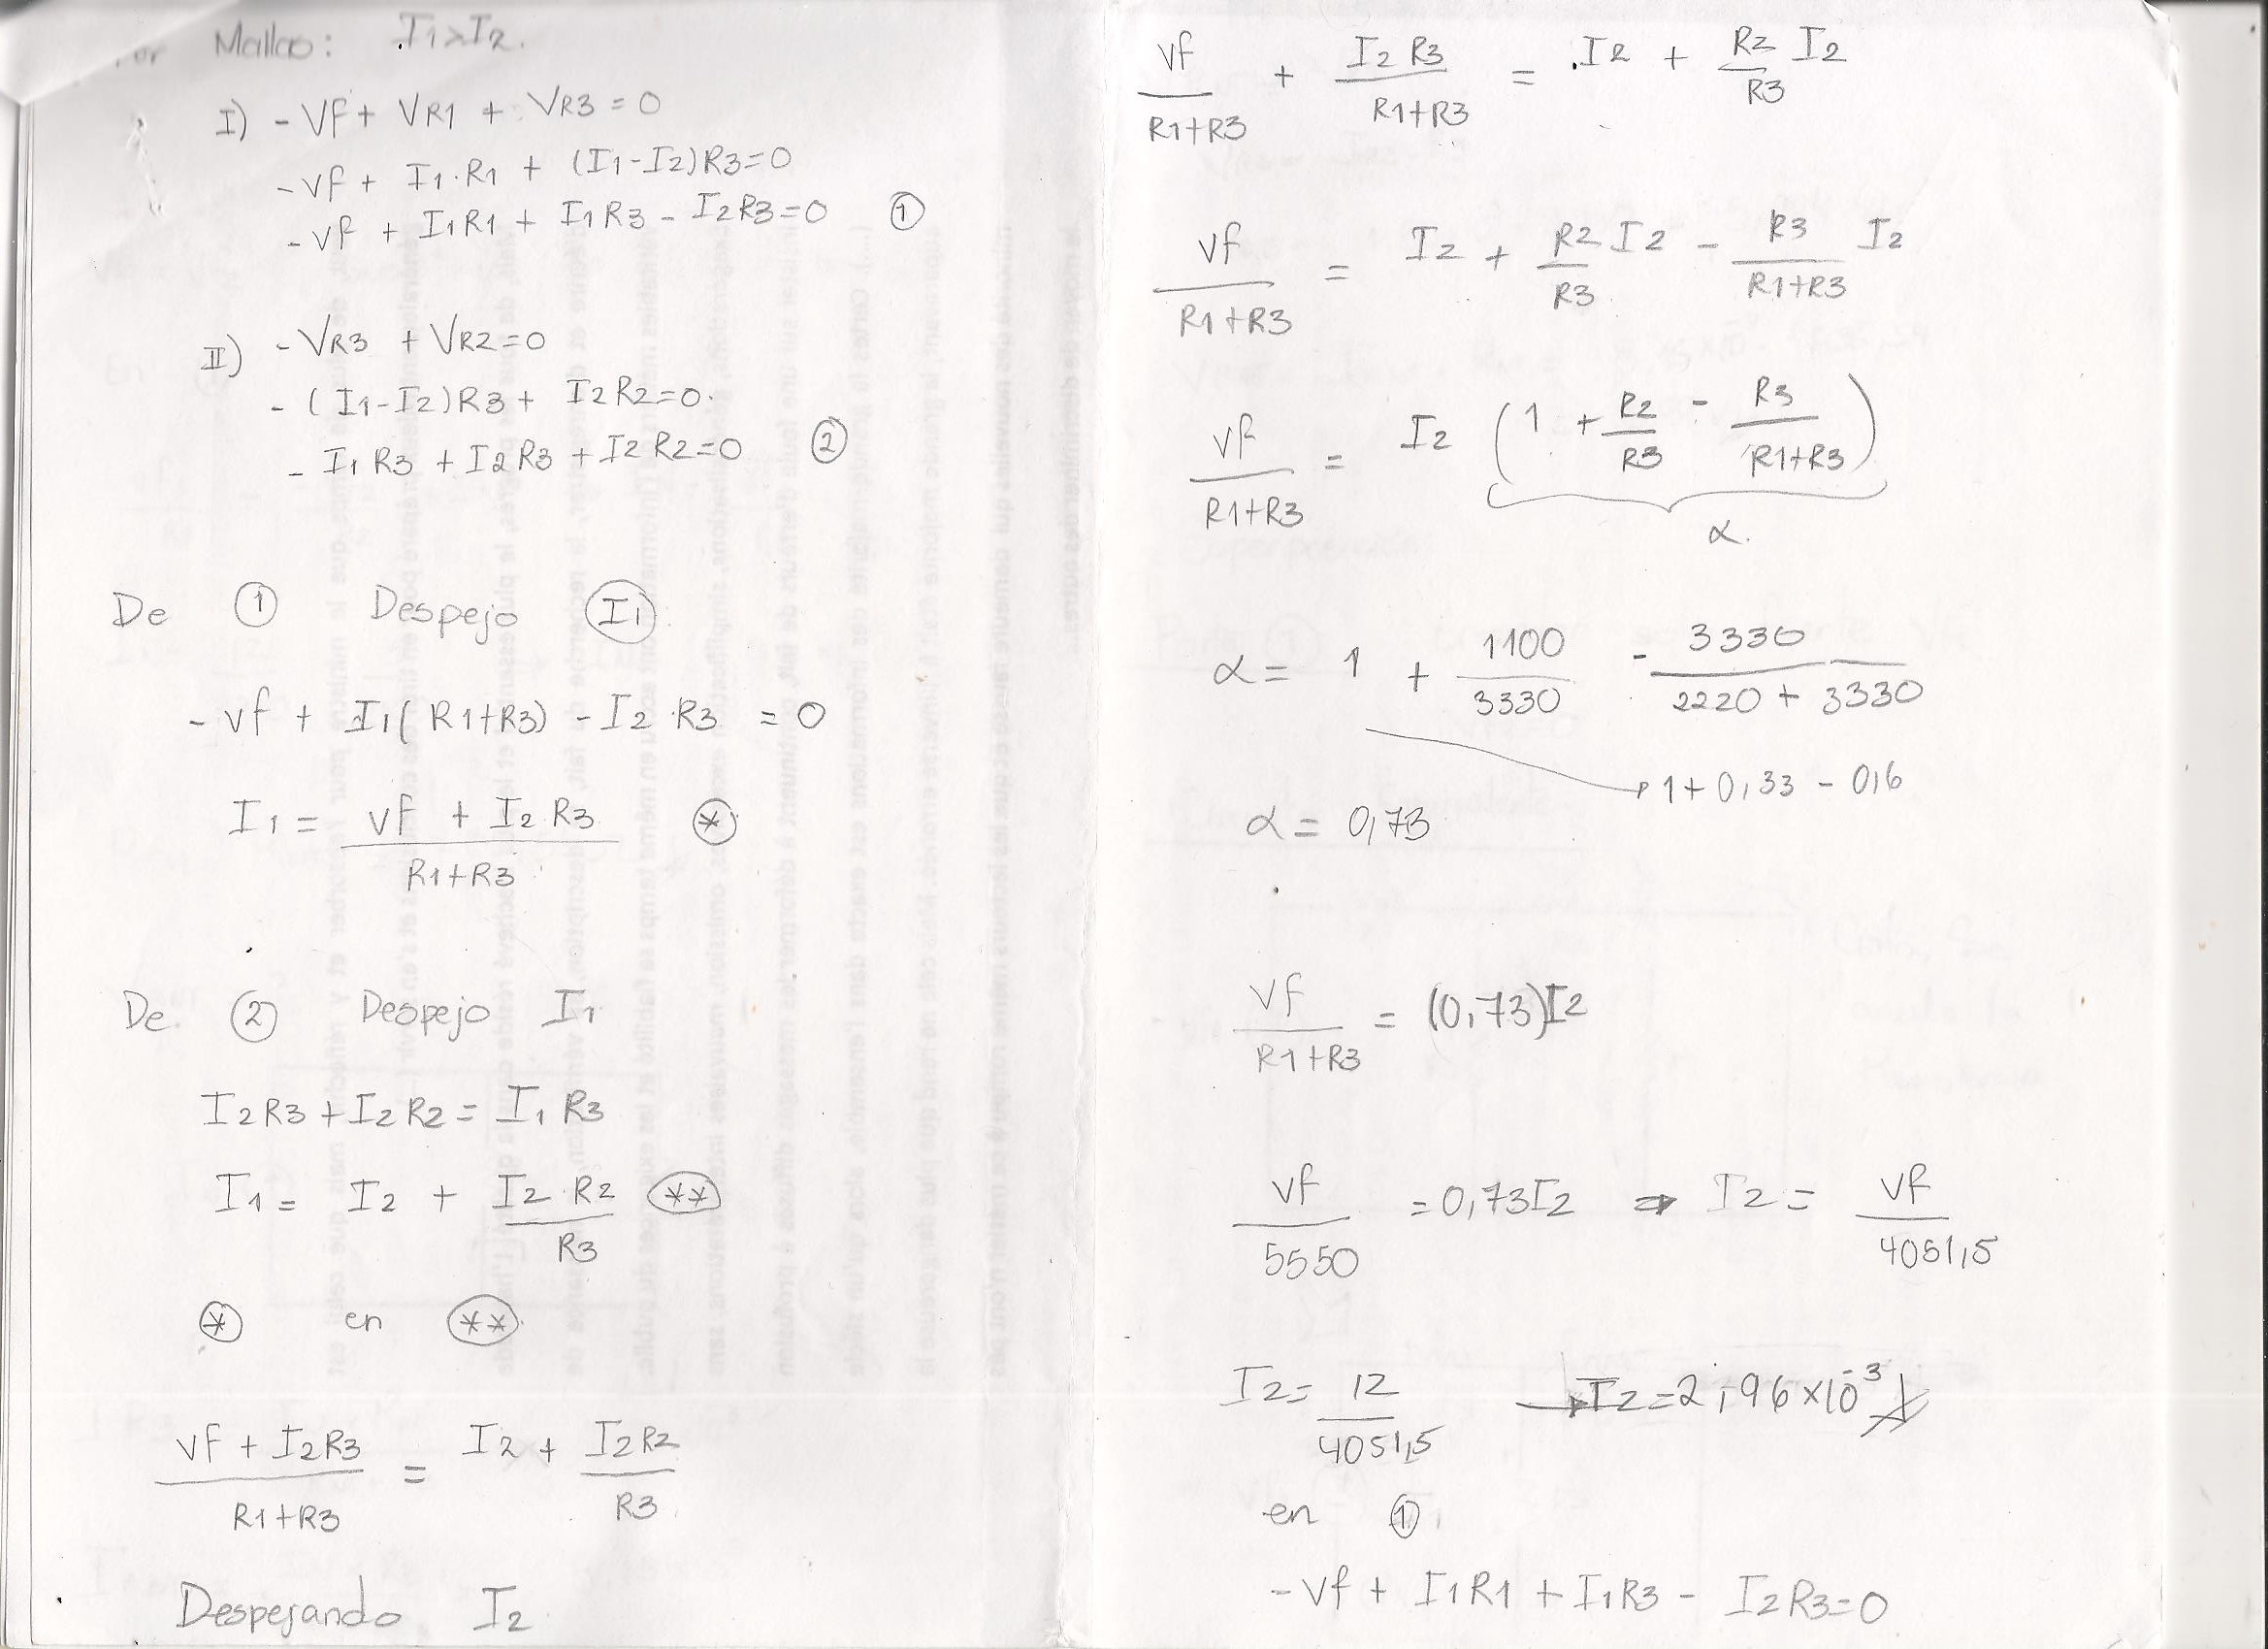 Por Mallas: I1>I2.
I) -Vf + VR1 + VR3 = 0
-Vf + I1·R1 + (I1-I2)R3=0
-Vf + I1R1 + I1R3 - I2R3=0 ①
II) -VR3 + VR2=0
-(I1-I2)R3+ I2R2=0.
-I1R3 + I2R3 + I2R2=0 ②
De ① Despejo I1
-Vf + I1(R1+R3) - I2·R3 = 0
I1 = (Vf + I2·R3)/(R1+R3) (*)
De ② Despejo I1
I2R3 + I2R2 = I1R3
I1 = I2 + (I2·R2)/R3 (**)
(*) en (**)
(Vf + I2R3)/(R1+R3) = I2 + (I2R2)/R3
Despejando I2
Vf/(R1+R3) + (I2R3)/(R1+R3) = I2 + (R2/R3) I2
Vf/(R1+R3) = I2 + (R2/R3) I2 - (R3/(R1+R3)) I2
Vf/(R1+R3) = I2 (1 + R2/R3 - R3/(R1+R3))
α.
α = 1 + 1100/3330 - 3330/(2220+3330)
→ 1 + 0,33 - 0,6
α = 0,73
Vf/(R1+R3) = (0,73)I2
Vf/5550 = 0,73I2 ⇒ I2 = Vf/4051,5
I2 = 12/4051,5 → I2 = 2,96 x 10⁻³ A
en ①
-Vf + I1R1 + I1R3 - I2R3=0